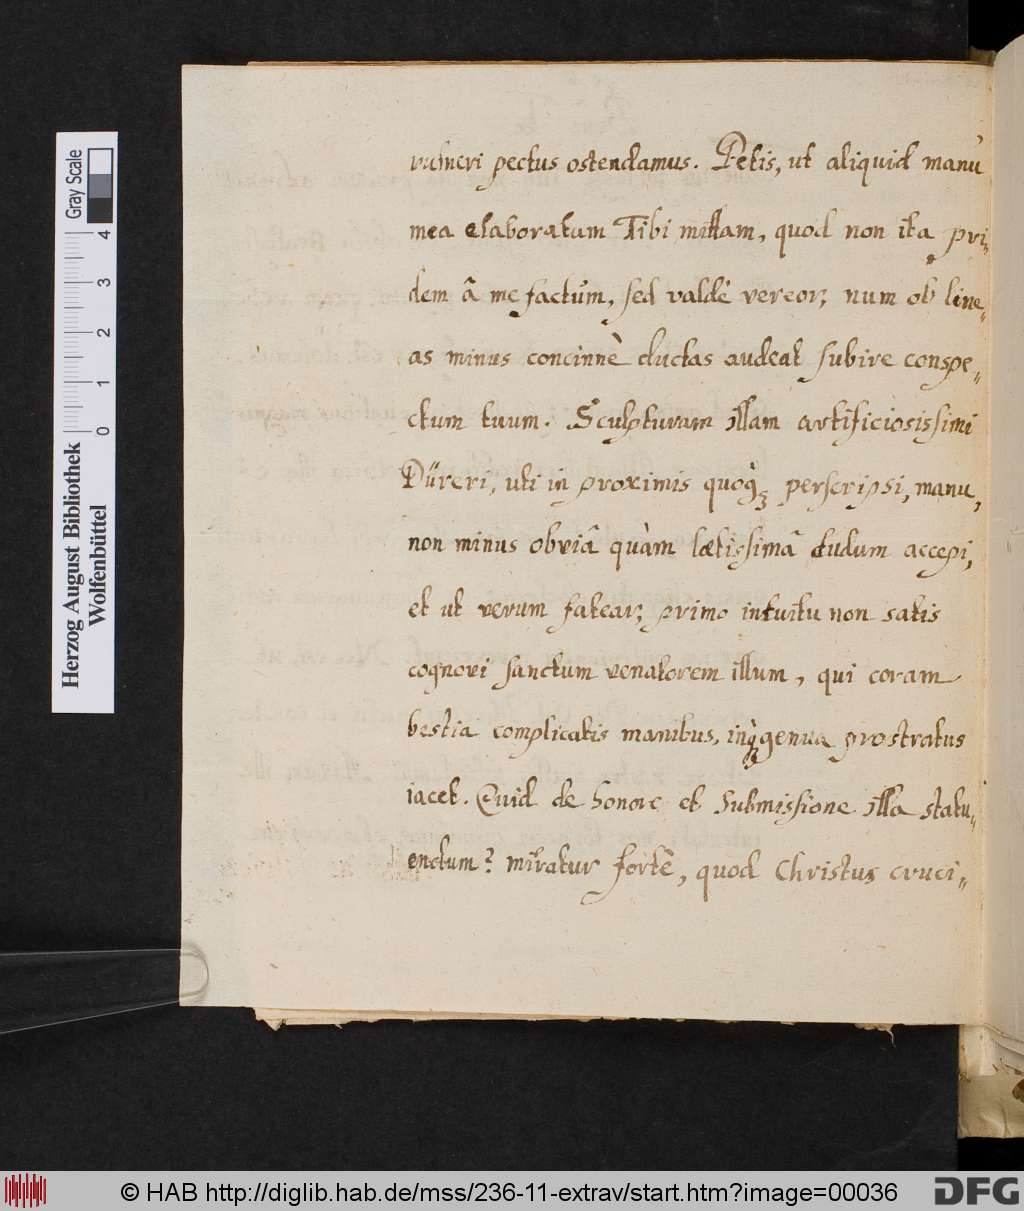 vulneri pectus ostendamus. Petis, ut aliquid manù
mea elaboratum Tibi mittam, quod non ita pri„
dem â me factum, sed valdè vereor, num ob line„
as minus concinnè ductas audeat subire conspe„
ctum tuum. Sculpturam illam artificiosissimi
Düreri, uti in proximis quoq; perscripsi, manu,
non minus obviâ quàm lætissimâ dudum accepi,
et ut verum fatear, primo intuitu non satis
cognovi sanctum venatorem illum, qui coram
bestia complicatis manibus, inq; genua prostratus
iacet. Quid de honore et submissione illa statu„
endum? miratur fortè, quod Christus cruci„
Herzog August Bibliothek
Wolfenbüttel
0 1 2 3 4
Gray Scale
© HAB http://diglib.hab.de/mss/236-11-extrav/start.htm?image=00036
DFG